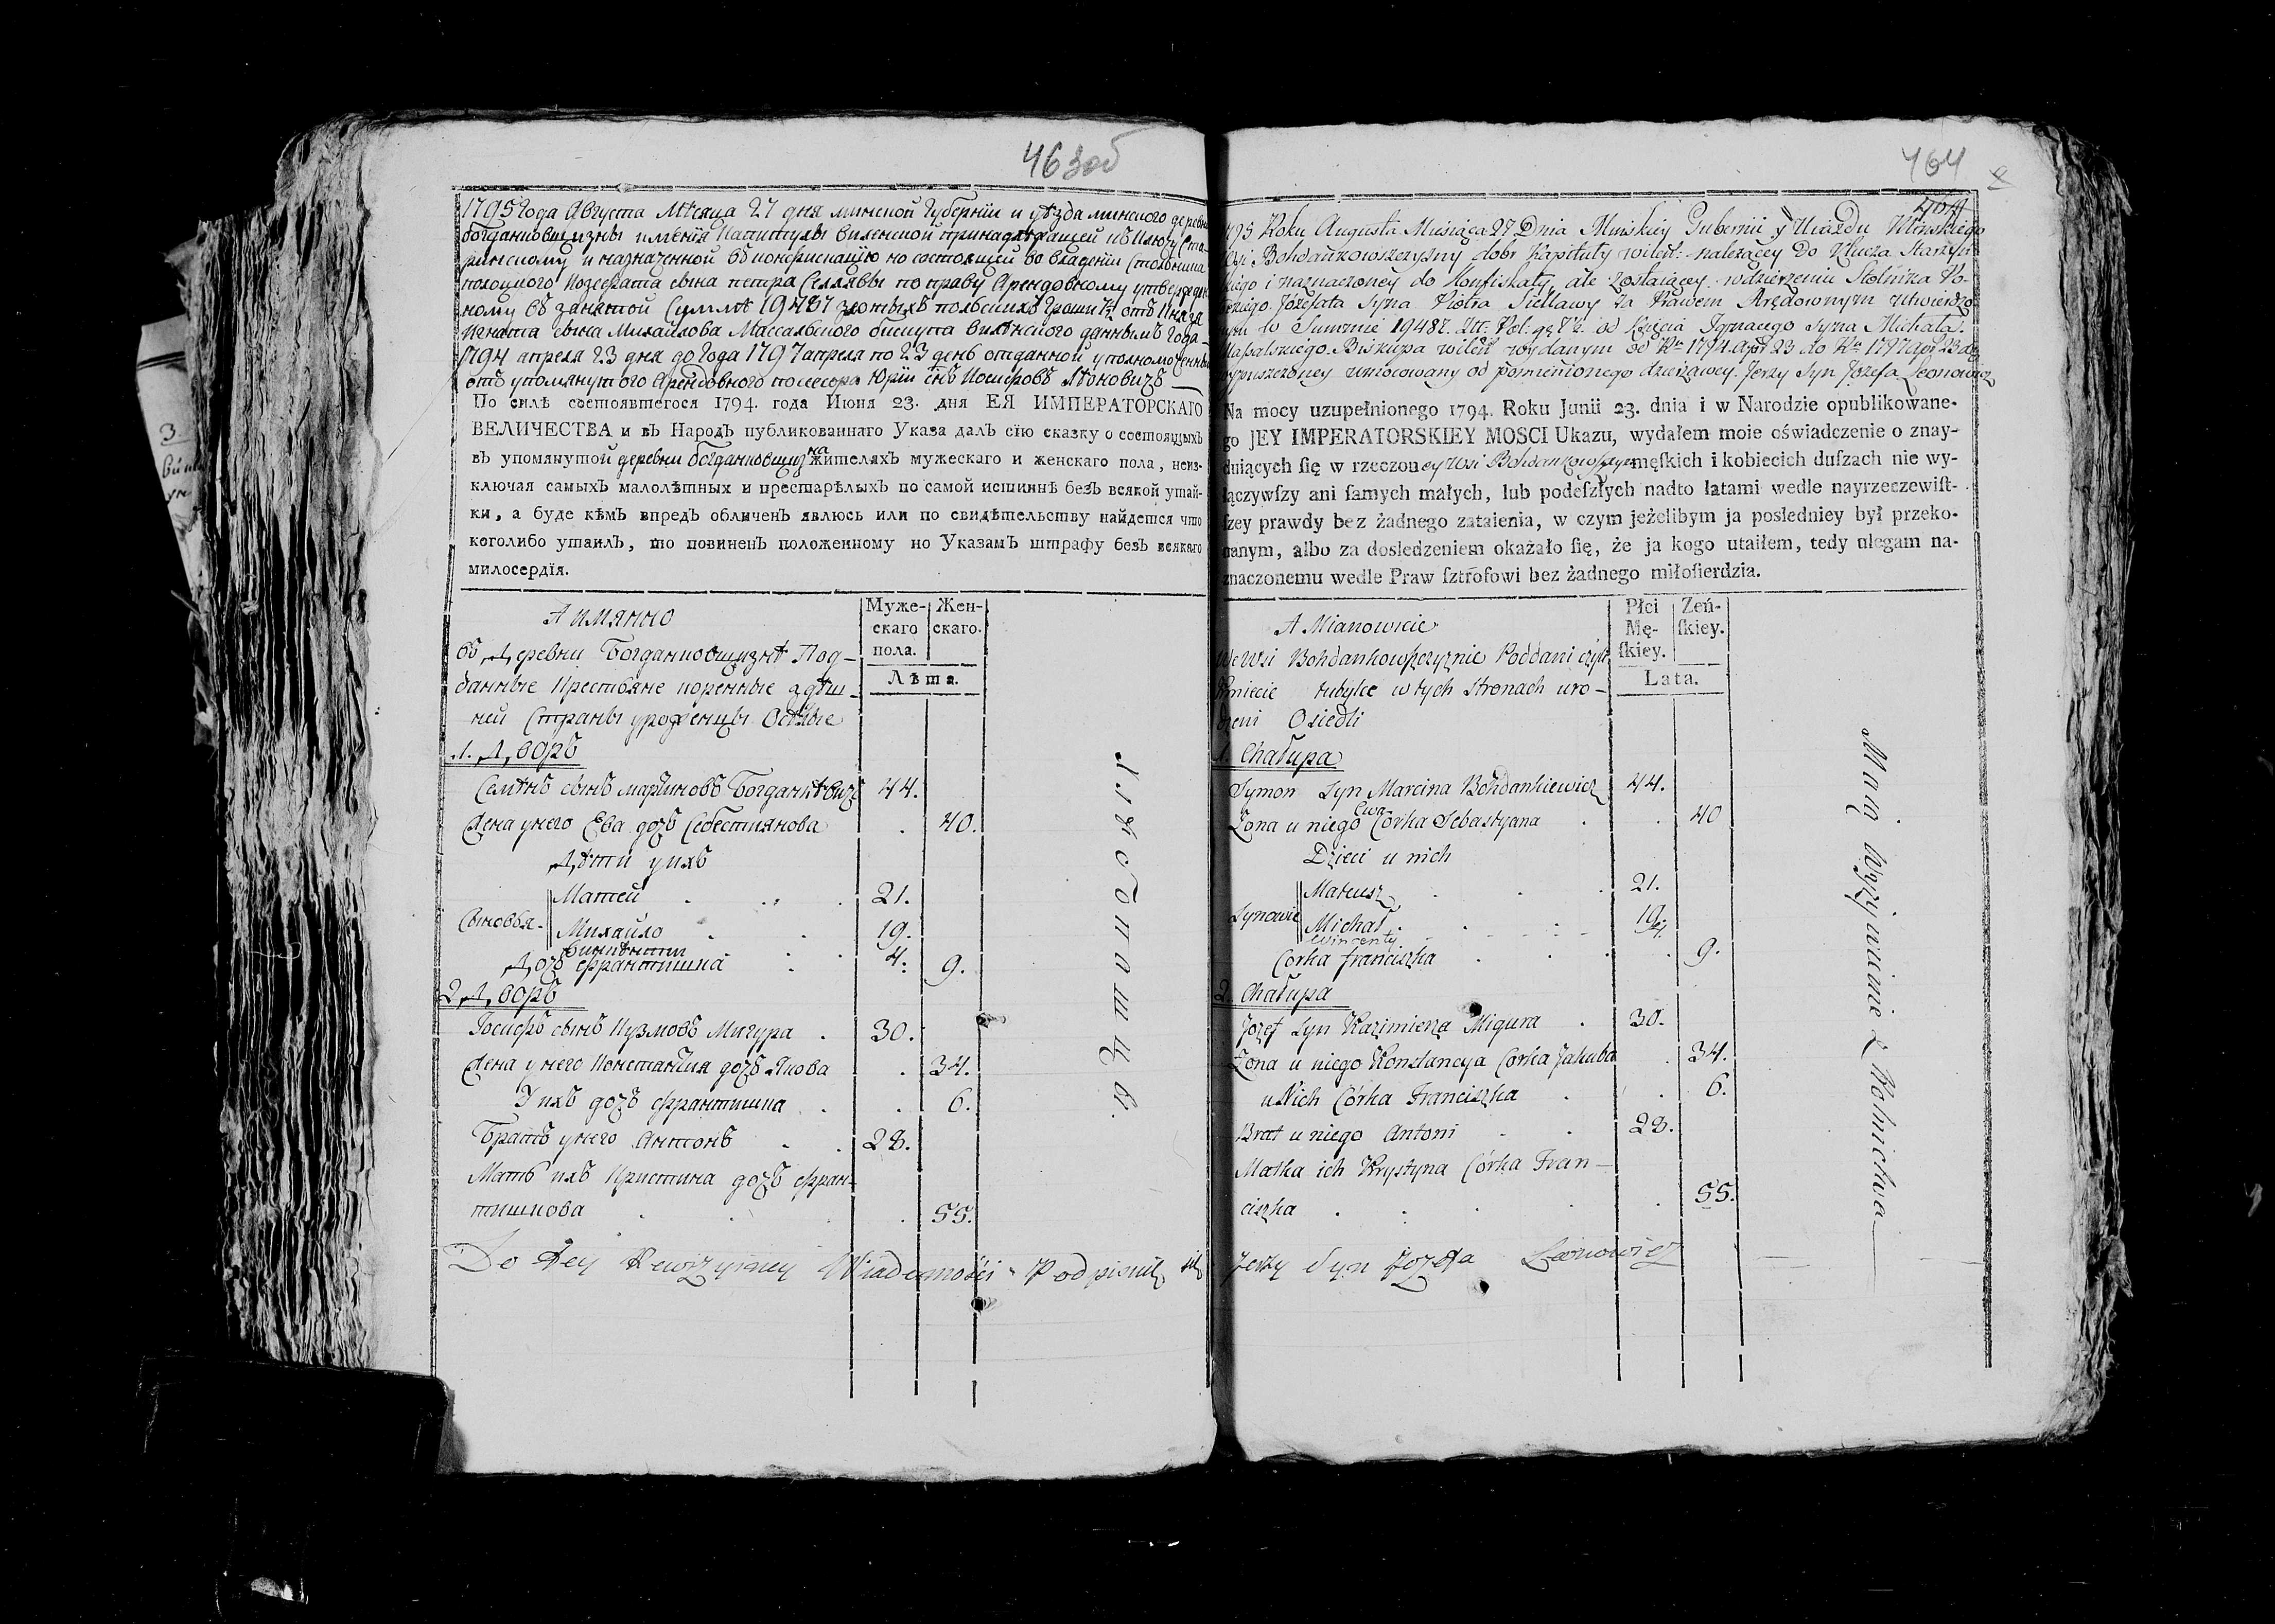 463об
1795 Года Августа Мѣсяца 27 дня минской Губернїи и уѣзда минского деревни
богданковщизны имѣнїя Капитулы виленской принадлѣжащей къ Ключу Ста-
ринскому и назначенной въ конфискацїю но состоящей во владенїи Столника
полоцкого Иозефата сына петра Селлявы по праву Арендовному утвержден-
ному въ занятой Суммѣ 19487 злотыхъ польскихъ Грошы 7½ отъ Князя
Игната сына Михайлова Массальского бискупа виленского даннымъ Года
1794 апреля 23 дня до Года 1797 апреля по 23 день отданной уполномоченный
отъ упомянутого Арендовного поссесора Юрїи сынъ Иосифовъ Лѣоновичъ
По силѣ состоявшегося 1794. года Июня 23. дня ЕЯ ИМПЕРАТОРСКАГО
ВЕЛИЧЕСТВА и въ Народъ публикованнаго Указа далъ сїю сказку о состоящыхъ
въ упомянутой деревни богданковщизна жителяхъ мужескаго и женскаго пола, неиз-
ключая самыхъ малолѣтныхъ и престарѣлыхъ по самой истиннѣ безъ всякой утай-
ки, а буде кѣмъ впредъ обличенъ явлюсь или по свидѣтельству найдется что
коголибо утаилъ, то повиненъ положенному по Указамъ штрафу безъ всякаго
милосердїя.
А имянно
Муже-
скаго
пола.
Жен-
скаго.
Лѣта.
въ Деревни Богданковщизнѣ Под-
данные Крестьяне коренные здѣш-
ней Страны уроженцы Осѣлые
1. Дворъ
Семѣнъ сынъ мартиновъ Богданкѣвичъ 44.
Жена унего Ева дочь Себестиянова 40.
Дѣти унхъ
Сыновья
Матей 21.
Михайло 19.
Винцѣнтии 4.
Дочь францишка 9.
2. Дворъ
Иосифъ сынъ Кузмовъ Мигура 30.
Жена унего Констанцїя дочь Якова 34.
У нхъ дочь францишка 6.
Братъ унего Антонъ 28.
Мать ихъ Кристина дочь фран-
тишкова 55.
Do tey Rewizyiney Wiadomości Podpisuię się
464
404
1795 Roku Augusta Miesiąca 27 Dnia Minskiey Gubernii y Uiazdu Minskiego
Wsi Bohdankowszczyzny dobr Kapituły wileń: należącey do Klucza Starzyń-
skiego i naznaczoney do Konfiskaty, ale zostaiącey w dzierżeniu Stolnika Po-
łockiego Jozefata Syna Piotra Siellawy za Prawem Arędownym utwierdzo-
nym w Summie 19487. Złł: Pol: gr 7½. od Xięcia Ignacego Syna Michała
Massalskiego Biskupa wileń: wydanym od Rku 1794 Apr 23 do Rku 1797 Apr 23 dnia
wypuszczoney umocowany od pomienionego dzierżawcy Jerzy Syn Jozefa Leonowicz
Na mocy uzupełnionego 1794. Roku Junii 23. dnia i w Narodzie opublikowane-
go JEY IMPERATORSKIEY MOSCI Ukazu, wydałem moie oświadczenie o znay-
duiących ſię w rzeczoney Wsi Bohdankowszczyznie męſkich i kobiecich duſzach nie wy-
łączywſzy ani ſamych małych, lub podeſzłych nadto latami wedle nayrzeczewiſt-
ſzey prawdy bez żadnego zataienia, w czym jeżelibym ja posledniey był przeko-
nanym, albo za dosledzeniem okazało ſię, że ja kogo utaiłem, tedy ulegam na-
znaczonemu wedle Praw ſztrofowi bez żadnego miłoſierdzia.
A Mianowicie
Płci
Mę-
ſkiey.
Zeń-
ſkiey.
Lata.
We Wsi Bohdankowszczyznie Poddani czyli
Kmiecie tubylce w tych Stronach uro-
dzeni Osiedli
1. Chałupa
Symon Syn Marcina Bohdankiewicz 44.
Zona u niego Ewa Córka Sebastyana 40
Dzieci u nich
Synowie
Mateusz 21.
Michał 19.
Wincenty 4.
Corka franciszka 9.
2. Chałupa
Jozef Syn Kazimierza Migura 30.
Zona u niego Konstancya Corka Jakuba 34.
u Nich Córka Franciszka 6.
Brat u niego Antoni 28.
Matka ich Krystyna Córka Fran-
ciszka 55.
Jerzy Syn Jozefa Leonowicz
Maią Wyżywienie z Rolnictwa